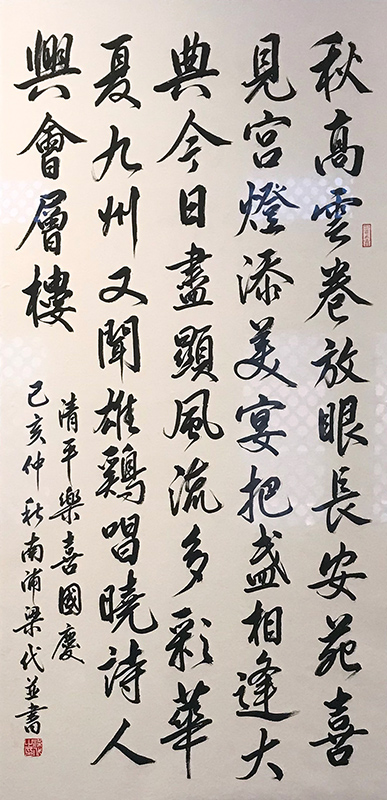 秋高雲卷放眼長安苑喜
見宮燈添美宴把盞相逢大
典今日盡顯風流多彩華
夏九州又聞雄鷄唱曉詩人
興會層樓
清平樂喜國慶
己亥仲秋南浦梁代並書